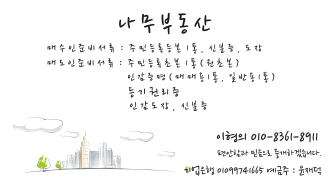 나무부동산
매수인준비서류 : 주민등록등본1통, 신분증, 도장
매도인준비서류 : 주민등록초본1통(원초본)
인감증명(매매용1통, 일반용1통)
등기권리증
인감도장, 신분증
이형의 010-8361-8911
편안함과 믿음으로 중개하겠습니다.
기업은행 01099741665 예금주 : 윤재덕